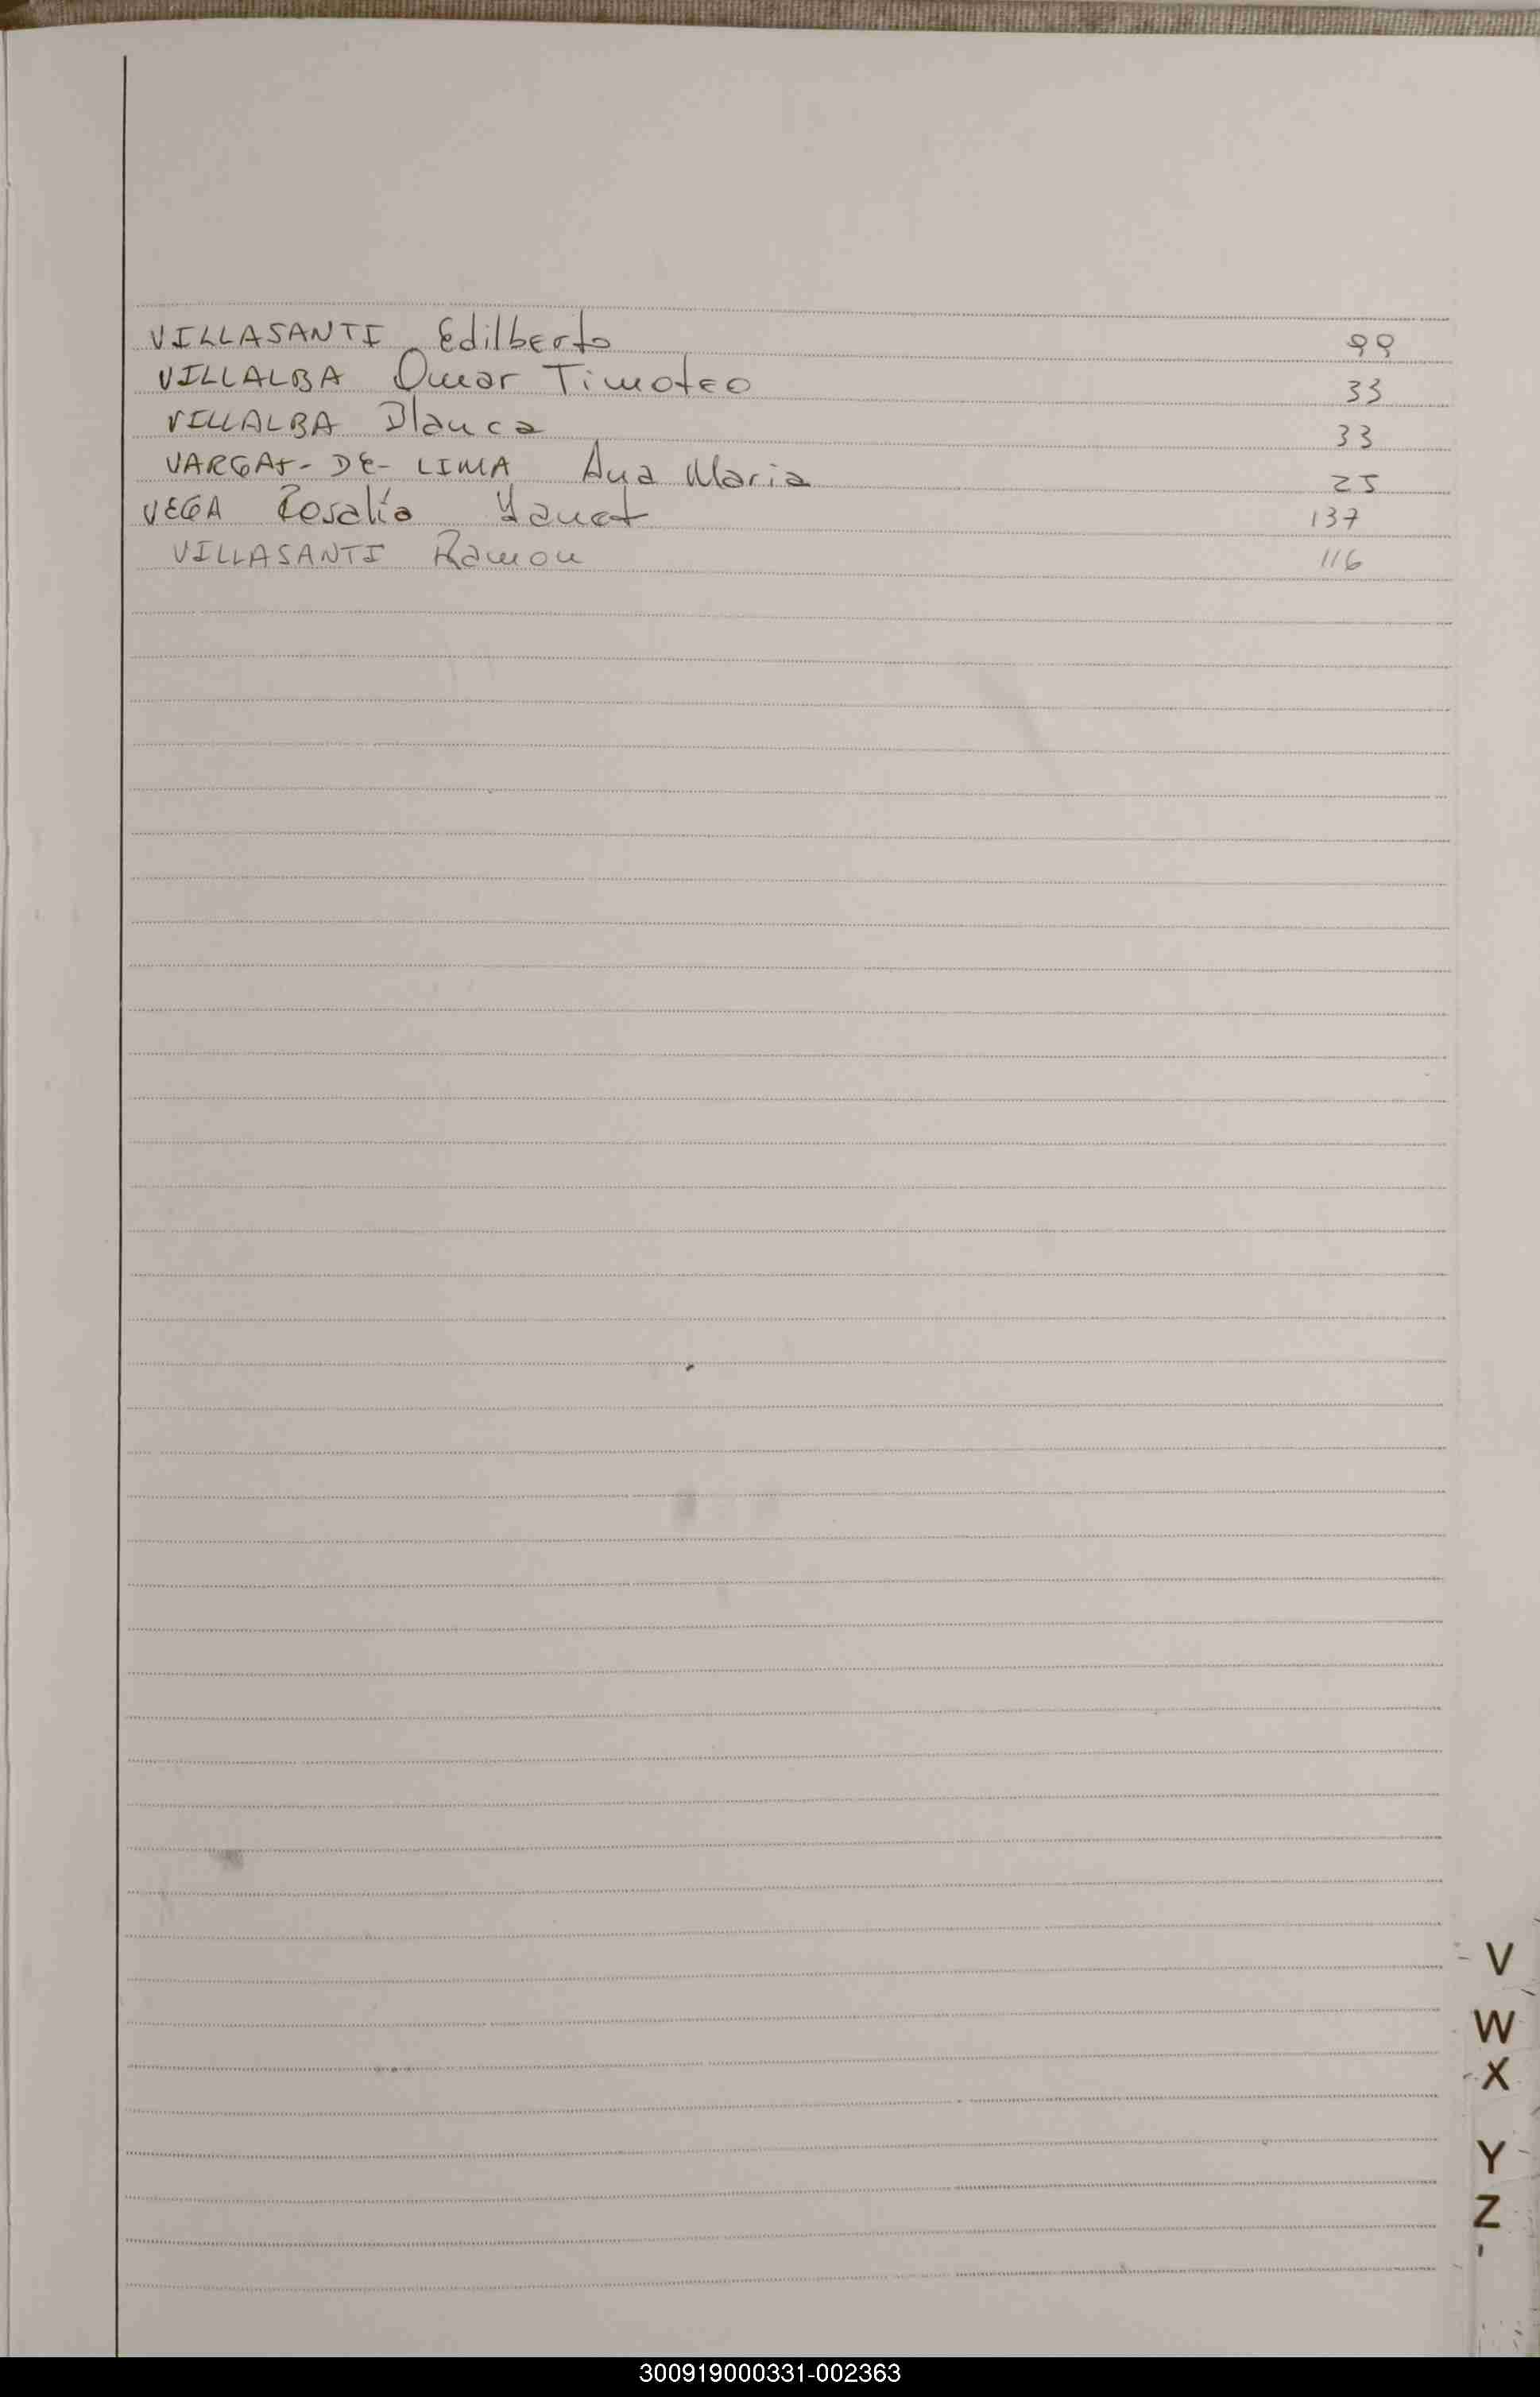 VILLASANTI Edilberto 99
VILLALBA Omar Timoteo 33
VILLALBA Blanca 33
VARGAS-DE-LIMA Ana Maria 25
VEGA Rosalía Yanet 137
VILLASANTI Ramon 116
V
W
X
Y
Z
300919000331-002363